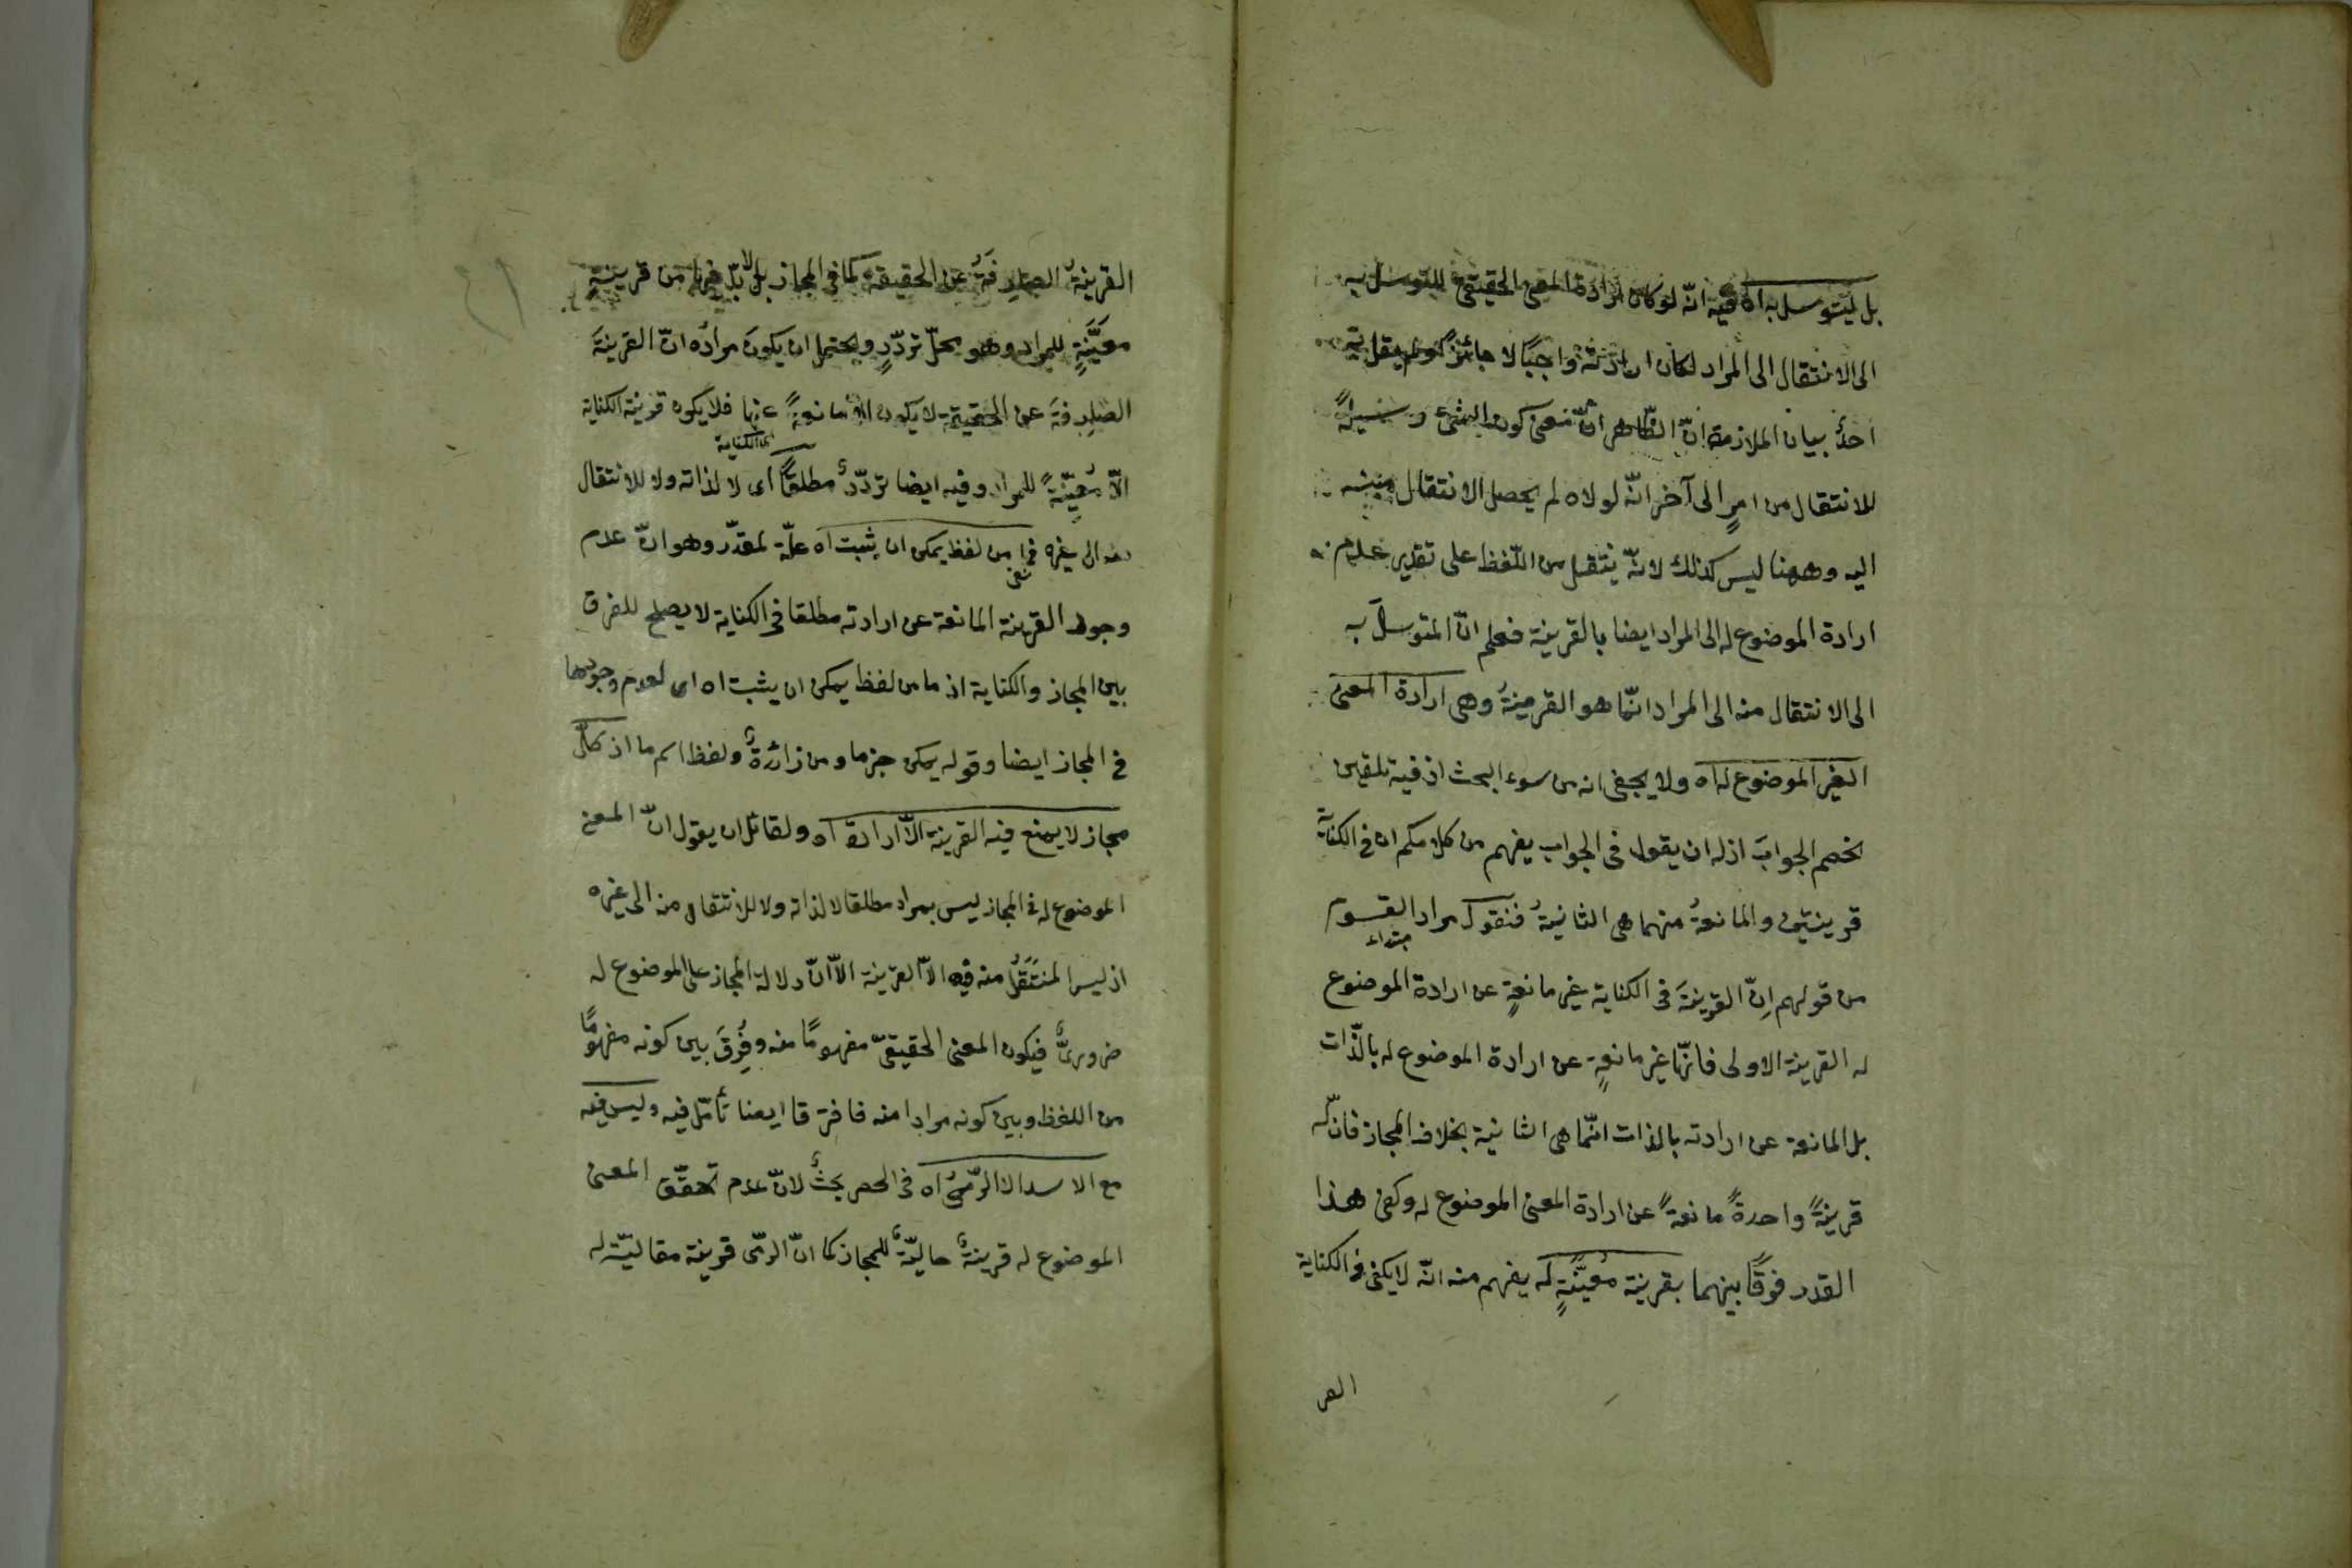 بل ليتوسل به اه فيه انّه لو كان ارادة المعنى الحقيقى للتوسل به
الى الانتقال الى المراد لكان ارادته واجبًا لا جائزًا ولم يقل به
احدٌ بيان الملازمة انّ الظاهر انّ معنى كون الشئ وسيلةً
للانتقال من امرٍ الى آخر انّه لولاه لم يحصل الانتقال منه
اليه وههنا ليس كذلك لانّه ينتقل من اللّفظ على تقدير عدم
ارادة الموضوع له الى المراد ايضا بالقرينة فعلم انّ المتوسلَ به
الى الانتقال منه الى المراد انّما هو القرينةُ وهى ارادة المعنى
الغير الموضوع له اه ولا يخفى انه من سوء البحث اذ فيه تلقين
لخصم الجوابَ اذ له ان يقول فى الجواب يفهم من كلامكم ان فى الكناية
قرينتين والمانعةُ منهما هى الثانيةُ فنقول مراد القوم
مبتداء
من قولهم اِنّ القرينةَ فى الكناية غير مانعةٍ عن ارادة الموضوع
له القرينة الاولى فانّها غير مانعةٍ عن ارادة الموضوع له بالذّات
بل المانعة عن ارادته بالذات انّما هى الثانية بخلاف المجاز فانّ له
قرينةً واحدةً مانعةً عن ارادة المعنى الموضوع له وكفى هذا
القدر فرقًا بينهما بقرينة معيّنةٍ له يفهم منه انّه لا يكفى فى الكناية
القر
القرينةُ الصارفةُ عن الحقيقة كما فى المجاز بل لا بدّ فيها من قرينةٍ
معيّنةٍ للمراد وهو محلّ تردّدٍ ويحتمل ان يكونَ مراده انّ القرينةَ
الصارفةَ عن الحقيقة لا يكون الا مانعةً عنها فلا يكون قرينة الكناية
اى الكناية
الاّ مُعيّنةً للمراد وفيه ايضا تردّدٌ مطلقًا اى لا لذاته ولا للانتقال
منه الى غيره فما من لفظ يمكن ان يثبت اه علّة لمقدّر وهو انّ عدم
نفى
وجود القرينة المانعة عن ارادته مطلقا فى الكناية لا يصلح للفرق
بين المجاز والكناية اذ ما من لفظ يمكن ان يثبت اه اى لعدم وجودها
فى المجاز ايضا وقوله يمكن جزما ومن زائدةٌ ولفظ اسم ما اذ كلّ
مجاز لا يمنع فيه القرينة الاّ ارادة اه ولقائل ان يقول انّ المعنى
الموضوع له فى المجاز ليس بمراد مطلقا لا لذاته ولا للانتقال منه الى غيره
اذ ليس المنتَقَلُ منه فيه الاّ القرينة الاّ انّ دلالة المجاز على الموضوع له
ضرورىٌّ فيكون المعنى الحقيقىّ مفهومًا منه وفُرِقَ بين كونه مفهومًا
من اللفظ وبين كونه مرادا منه فافترقا ايضا تأمّل فيه وليس فيه
مع الاسد الا الرّمىُ اه فى الحصر بحثٌ لانّ عدم تحقّق المعنى
الموضوع له قرينةٌ حاليّةٌ للمجاز كما انّ الرمى قرينة مقاليّة له